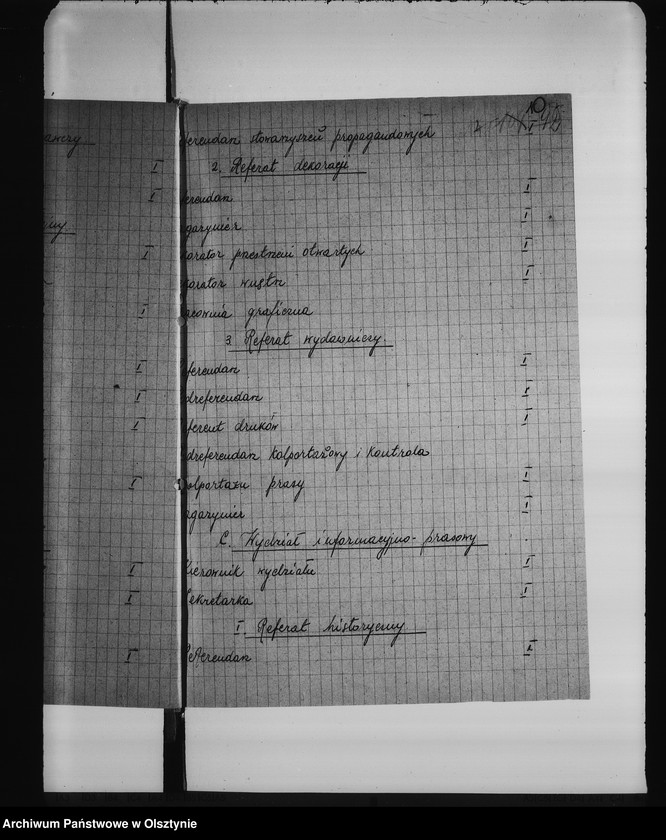 10
ferendarz stowarzyszeń propagandowych I
2. Referat dekoracji
ferendarz I
gazynier I
korator przestrzeni otwartych I
korator wnętrz I
acownia graficzna
3. Referat wydawniczy
ferendarz I
dreferendarz I
ferent druków I
dreferendarz kolportażowy i kontrola
olportażu prasy I
agazynier I
C. Wydział informacyjno-prasowy
Kierownik wydziału I
Sekretarka I
I Referat historyczny
Referendarz I
Archiwum Państwowe w Olsztynie